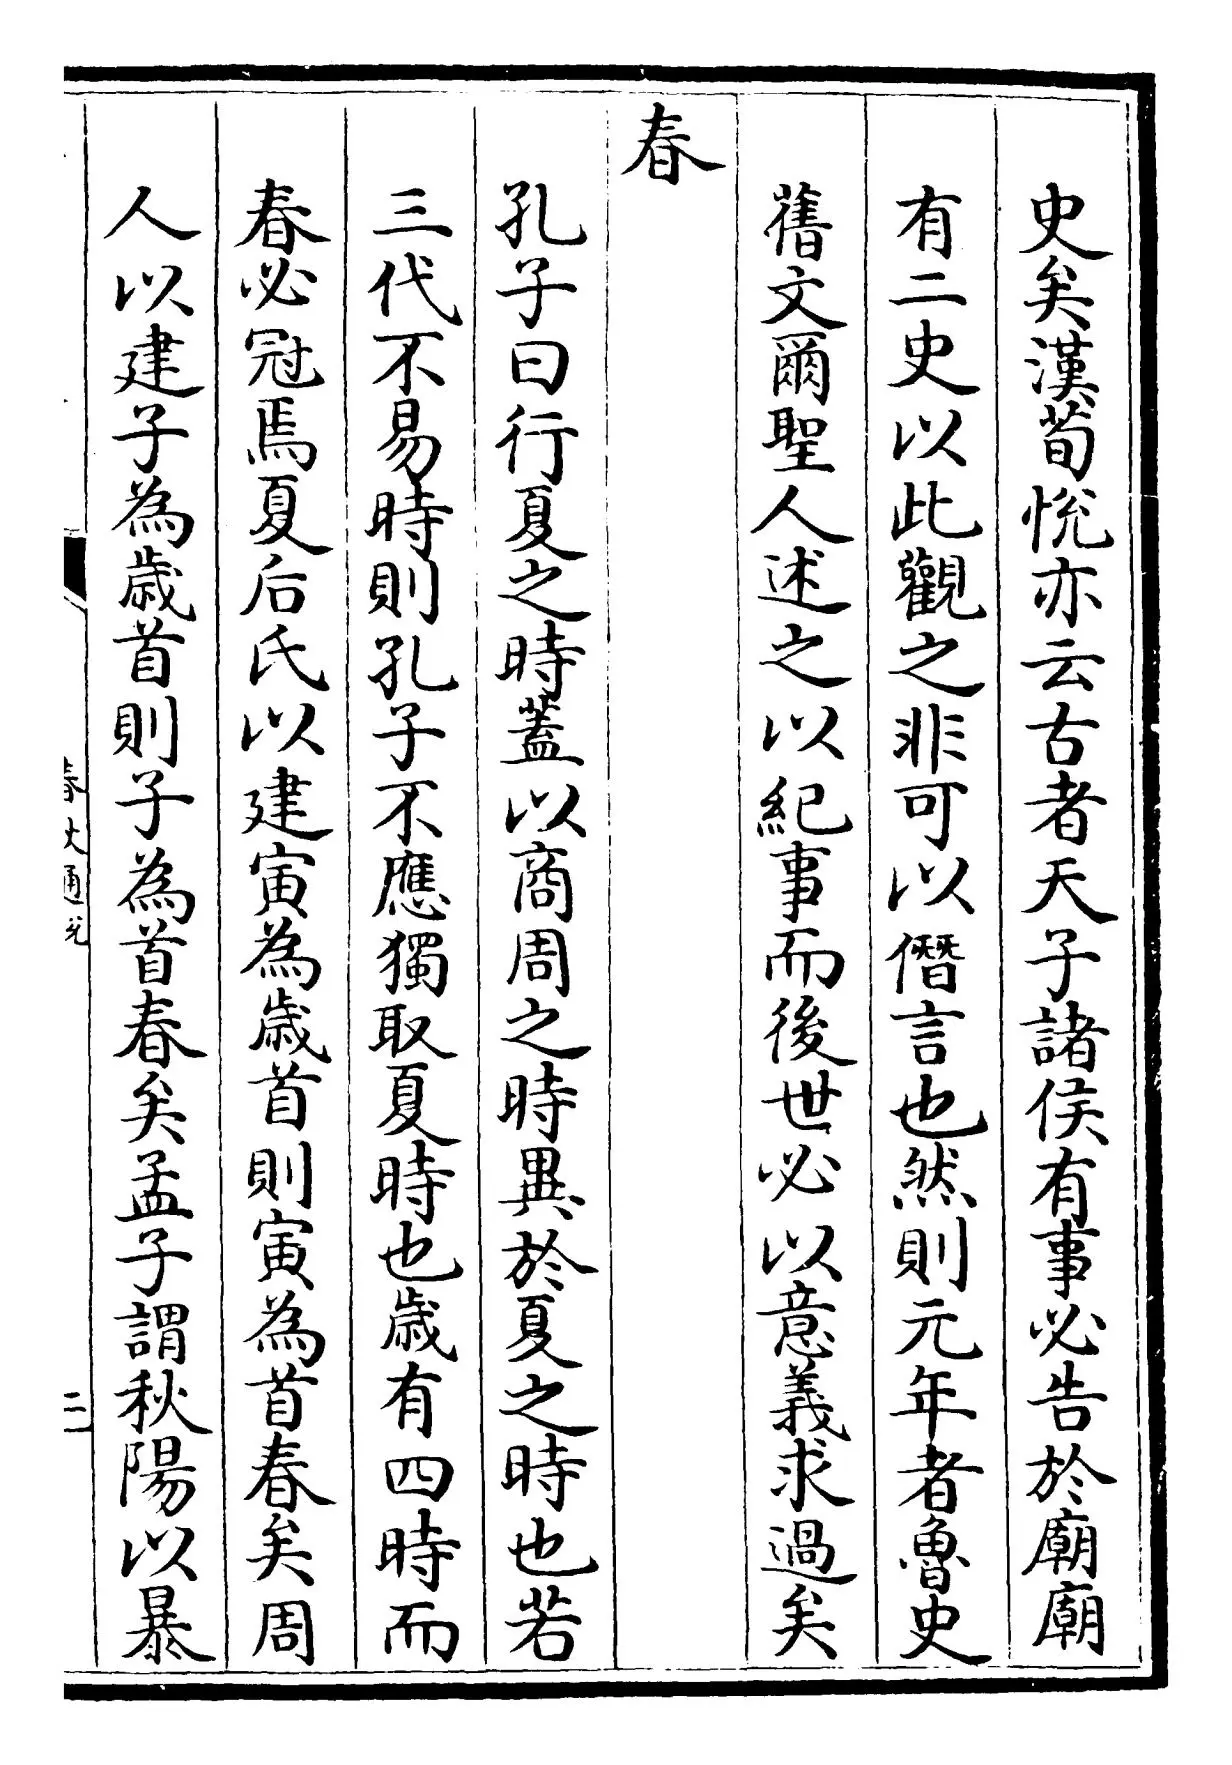 史矣漢荀悅亦云古者天子諸侯有事必告於廟廟
有二史以此觀之非可以僭言也然則元年者魯史
舊文爾聖人述之以紀事而後世必以意義求過矣
春
孔子曰行夏之時蓋以商周之時異於夏之時也若
三代不易時則孔子不應獨取夏時也歲有四時而
春必冠焉夏后氏以建寅為歲首則寅為首春矣周
人以建子為歲首則子為首春矣孟子謂秋陽以暴
春秋通說
三